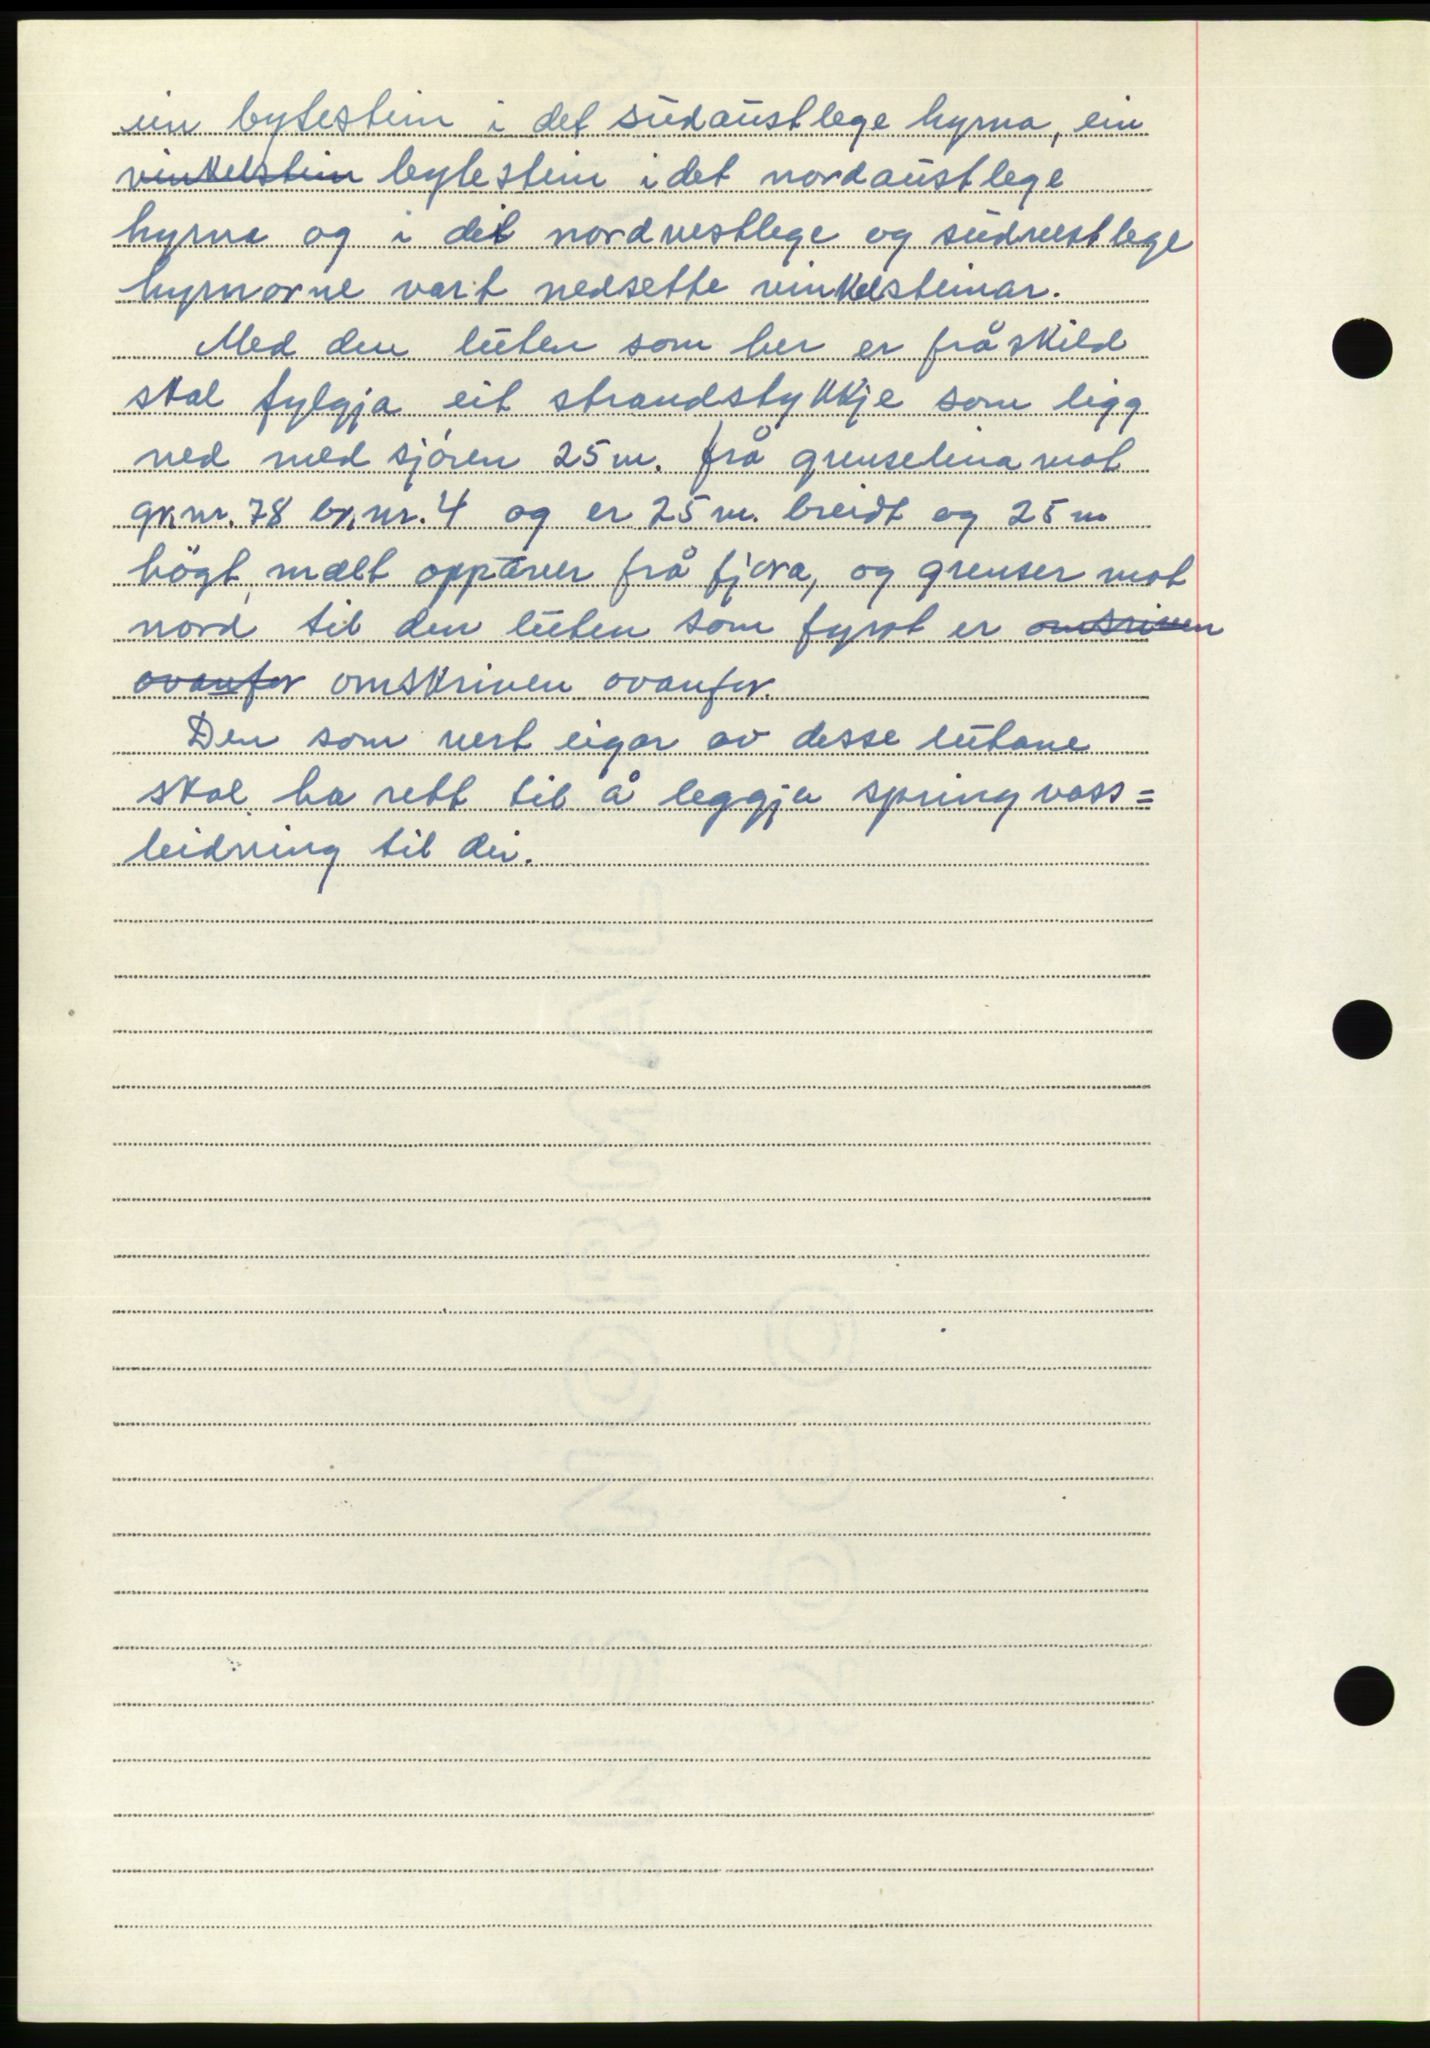 ein bytestein i det südaüstlege hyrna, ein
vinkelstein bytestein i det nordaüstlege
hyrna og i dei nordvestlege og südvestlege
hyrnorne vart nedsette vinkelsteinar.
Med den lüten som her er fråskild
skal fylgja eit strandstykkje som ligg
ned med sjóren 25 m. frå grenselina mot
gr.nr. 78 br.nr. 4 og er 25 m. breidt og 25 m
högt, mælt oppöver frå fjöra, og grenser mot
nord til den lüten som fyrst er omsriven
ovanfor omskriven ovanfor.
Den som vert eigar av desse lütane
skal ha rett til å leggja springvass=
leidning til dei.